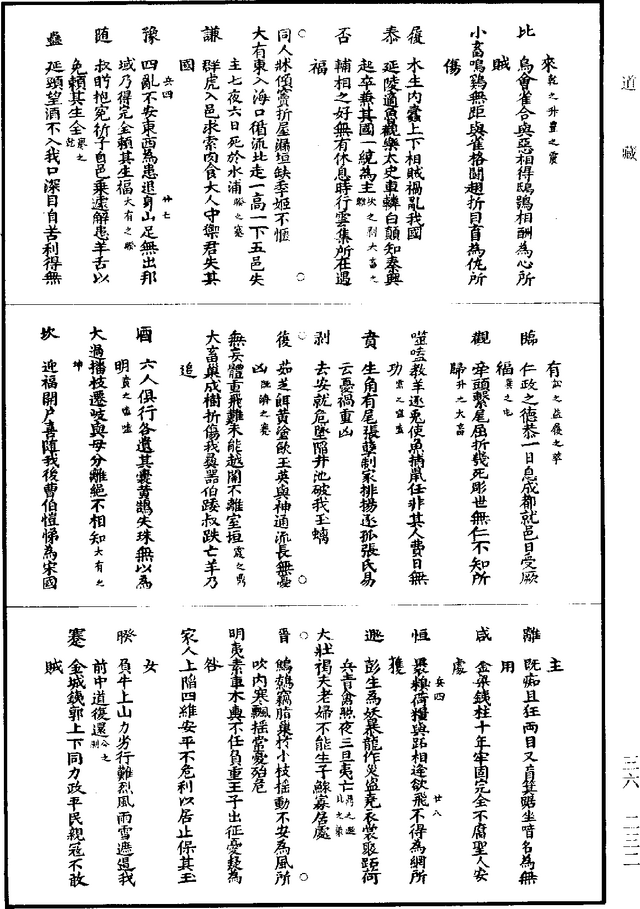 道藏
三六 二三二
來乾之升豐之震
比 烏會雀合與惡相得鴟鴞相酬為心所
賊
小畜鳴鷄無距與雀格鬪翅折目盲為仇所
傷
履 木生內蠹上下相賊禍亂我國
泰 延陵適魯觀樂太史車轔白顛知秦興
起卒兼其國一統為主坎之剥大畜之離
否 輔相之好無有休息時行雲集所在遇
福
同人牀傾簀折屋漏垣缺季姬不愜
大有東入海口循流北走一高一下五邑失
主七夜六日死於水浦睽之蹇
謙 群虎入邑求索肉食大人守禦君失其
國
兵四 廿七
豫 四亂不安東西為患退身止足無出邦
域乃得完全賴其生福大有之睽
隨 叔肸抱寃祈子自邑乘遽解患羊舌以
免賴其生全
蠱 延頸望酒不入我口深目自苦利得無
有訟之益復之萃
臨 仁政之德恭一日息成都就邑日受厥
福
觀 牽頭繫尾屈折幾死彫世無仁不知所
歸升之大畜
噬嗑教羊逐兔使魚捕鼠任非其人費日無
功
賁 生角有尾張孽制家排揚逐孤張氏易
云憂禍重凶
剥 去安就危墜陷井池破我玉螭
復 茹芝餌黃塗飲玉英與神通流長無憂
凶既濟之蹇
無妄體重飛難未能越關不離室垣
大畜巢成樹折傷我彝器伯踒叔跌亡羊乃
追
頤 六人俱行各遺其囊黃鵠失珠無以為
明賁之噬嗑
大過播枝遷岐與母分離絕不相知大有之坤
坎 迎福開戶喜隨我後曹伯愷悌為宋國
主
離 既痴且狂兩目又盲箕踞坐喑名為無
用
咸 金梁鐵柱十年牢固完全不腐聖人安
處
兵四 廿八
恒 裹糇荷糧與跖相逢欲飛不得為網所
獲
遯 彭生為妖暴龍作災盜堯衣裳聚跖荷
兵青禽照夜三旦夷亡
大壯褐夫老婦不能生子鰥寡居處
晉 鷦鷯竊脂巢於小枝搖動不安為風所
吹內寒飄搖常憂殆危
明夷素車木輿不任負重王子出征憂疑為
咎
家人上陷四維安平不危利以居止保其玉
女
睽 負牛上山力劣行難烈風雨雪遮遏我
前中道復還
蹇 金城鐵郭上下同力政平民親寇不敢
賊